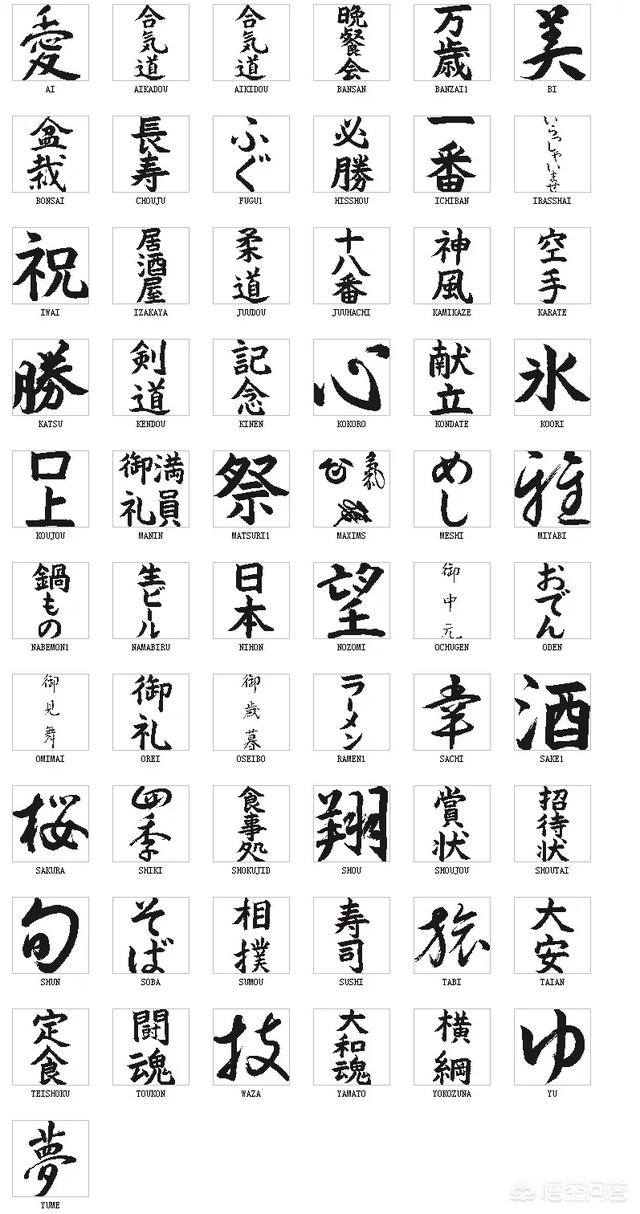 愛 合気道 合気道 晩餐会 万歳 美
AI AIKADOU AIKIDOU BANSAN BANZAI1 BI
盆栽 長寿 ふぐ 必勝 一番 いらっしゃいませ
BONSAI CHOUJU FUGU1 HISSHOU ICHIBAN IRASSHAI
祝 居酒屋 柔道 十八番 神風 空手
IWAI IZAKAYA JUUDOU JUUHACHI KAMIKAZE KARATE
勝 剣道 記念 心 献立 氷
KATSU KENDOU KINEN KOKORO KONDATE KOORI
口上 満員御礼 祭 めし 雅
KOUJOU MANIN MATSURI1 MAXIMS MESHI MIYABI
鍋もの 生ビール 日本 望 御中元 おでん
NABEMON1 NAMABIRU NIHON NOZOMI OCHUGEN ODEN
御見舞 御礼 御歳暮 ラーメン 幸 酒
OMIMAI OREI OSEIBO RAMEN1 SACHI SAKE1
桜 四季 食事処 翔 賞状 招待状
SAKURA SHIKI SHOKUJID SHOU SHOUJOU SHOUTAI
旬 そば 相撲 寿司 旅 大安
SHUN SOBA SUMOU SUSHI TABI TAIAN
定食 闘魂 技 大和魂 横綱 ゆ
TEISHOKU TOUKON WAZA YAMATO YOKOZUNA YU
夢
YUME
悟空问答